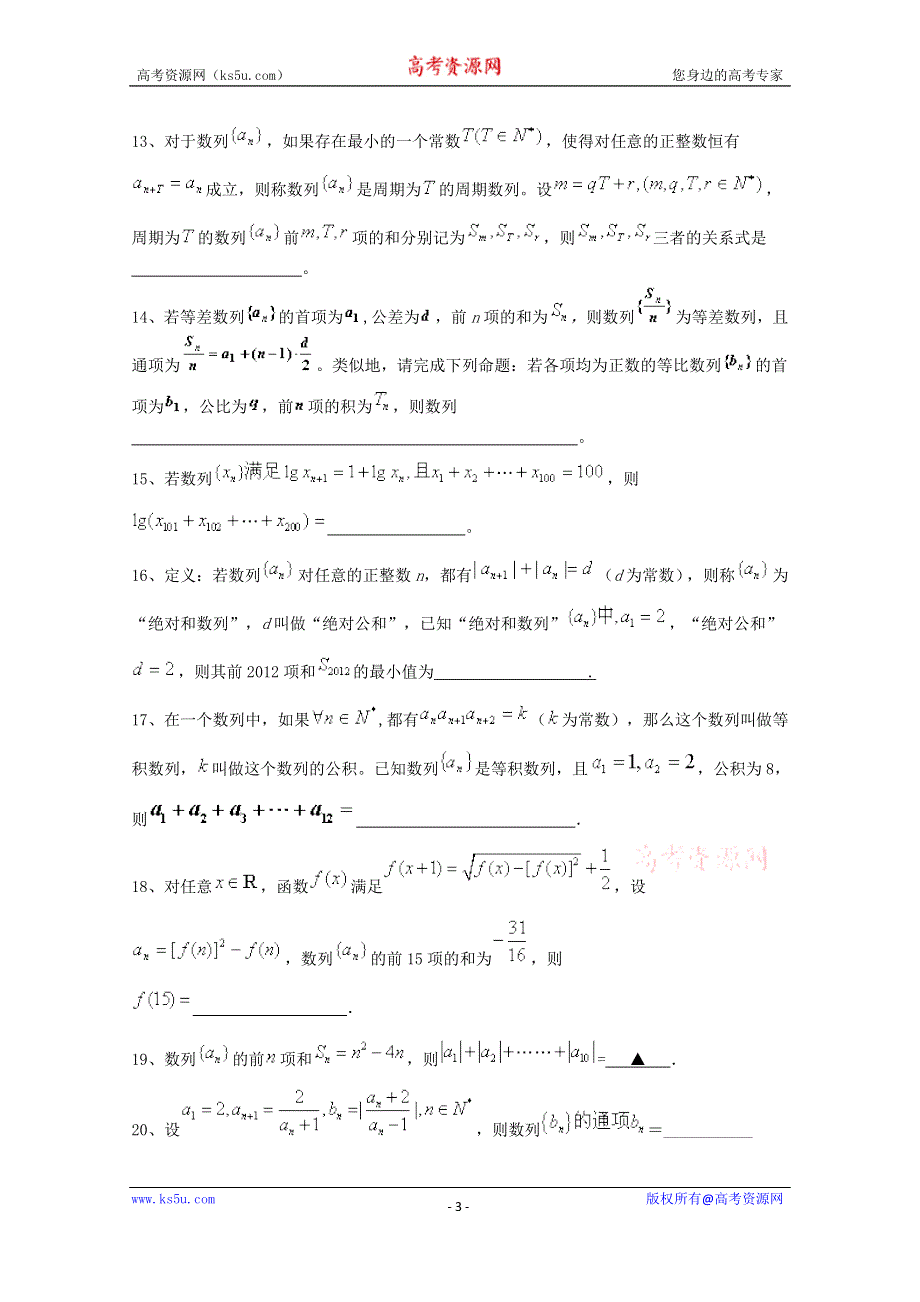 高考资源网（ks5u.com）
高考资源网
您身边的高考专家
13、对于数列{aₙ}，如果存在最小的一个常数T(T∈N*)，使得对任意的正整数恒有
aₙ₊T=aₙ成立，则称数列{aₙ}是周期为T的周期数列。设m=qT+r,(m,q,T,r∈N*)，
周期为T的数列{aₙ}前m,T,r项的和分别记为Sₘ,S_T,Sᵣ，则Sₘ,S_T,Sᵣ三者的关系式是
____________________。
14、若等差数列{aₙ}的首项为a₁,公差为d，前n项的和为Sₙ，则数列{Sₙ/n}为等差数列，且
通项为Sₙ/n=a₁+(n-1)·d/2。类似地，请完成下列命题：若各项均为正数的等比数列{bₙ}的首
项为b₁，公比为q，前n项的积为Tₙ，则数列
____________________________________________________。
15、若数列{xₙ}满足lg xₙ₊₁=1+lg xₙ,且x₁+x₂+⋯+x₁₀₀=100，则
lg(x₁₀₁+x₁₀₂+⋯+x₂₀₀)=________________。
16、定义：若数列{aₙ}对任意的正整数n，都有|aₙ₊₁|+|aₙ|=d（d为常数），则称{aₙ}为
“绝对和数列”，d叫做“绝对公和”，已知“绝对和数列”{aₙ}中,a₁=2，“绝对公和”
d=2，则其前2012项和S₂₀₁₂的最小值为__________________.
17、在一个数列中，如果∀n∈N*,都有aₙaₙ₊₁aₙ₊₂=k（k为常数），那么这个数列叫做等
积数列，k叫做这个数列的公积。已知数列{aₙ}是等积数列，且a₁=1,a₂=2，公积为8，
则a₁+a₂+a₃+⋯+a₁₂=__________________________.
高考资源网
18、对任意x∈R，函数f(x)满足f(x+1)=√(f(x)-[f(x)]²)+1/2，设
aₙ=[f(n)]²-f(n)，数列{aₙ}的前15项的和为-31/16，则
f(15)=__________________.
19、数列{aₙ}的前n项和Sₙ=n²-4n，则|a₁|+|a₂|+……+|a₁₀|=___▲___.
20、设a₁=2,aₙ₊₁=2/(aₙ+1),bₙ=|(aₙ+2)/(aₙ-1)|,n∈N*，则数列{bₙ}的通项bₙ=___________
www.ks5u.com
- 3 -
版权所有@高考资源网